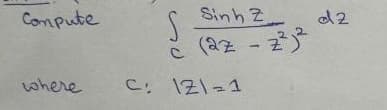 Compute ∫_C Sinh Z / (2Z - Z²)² dZ
where C: |Z| = 1